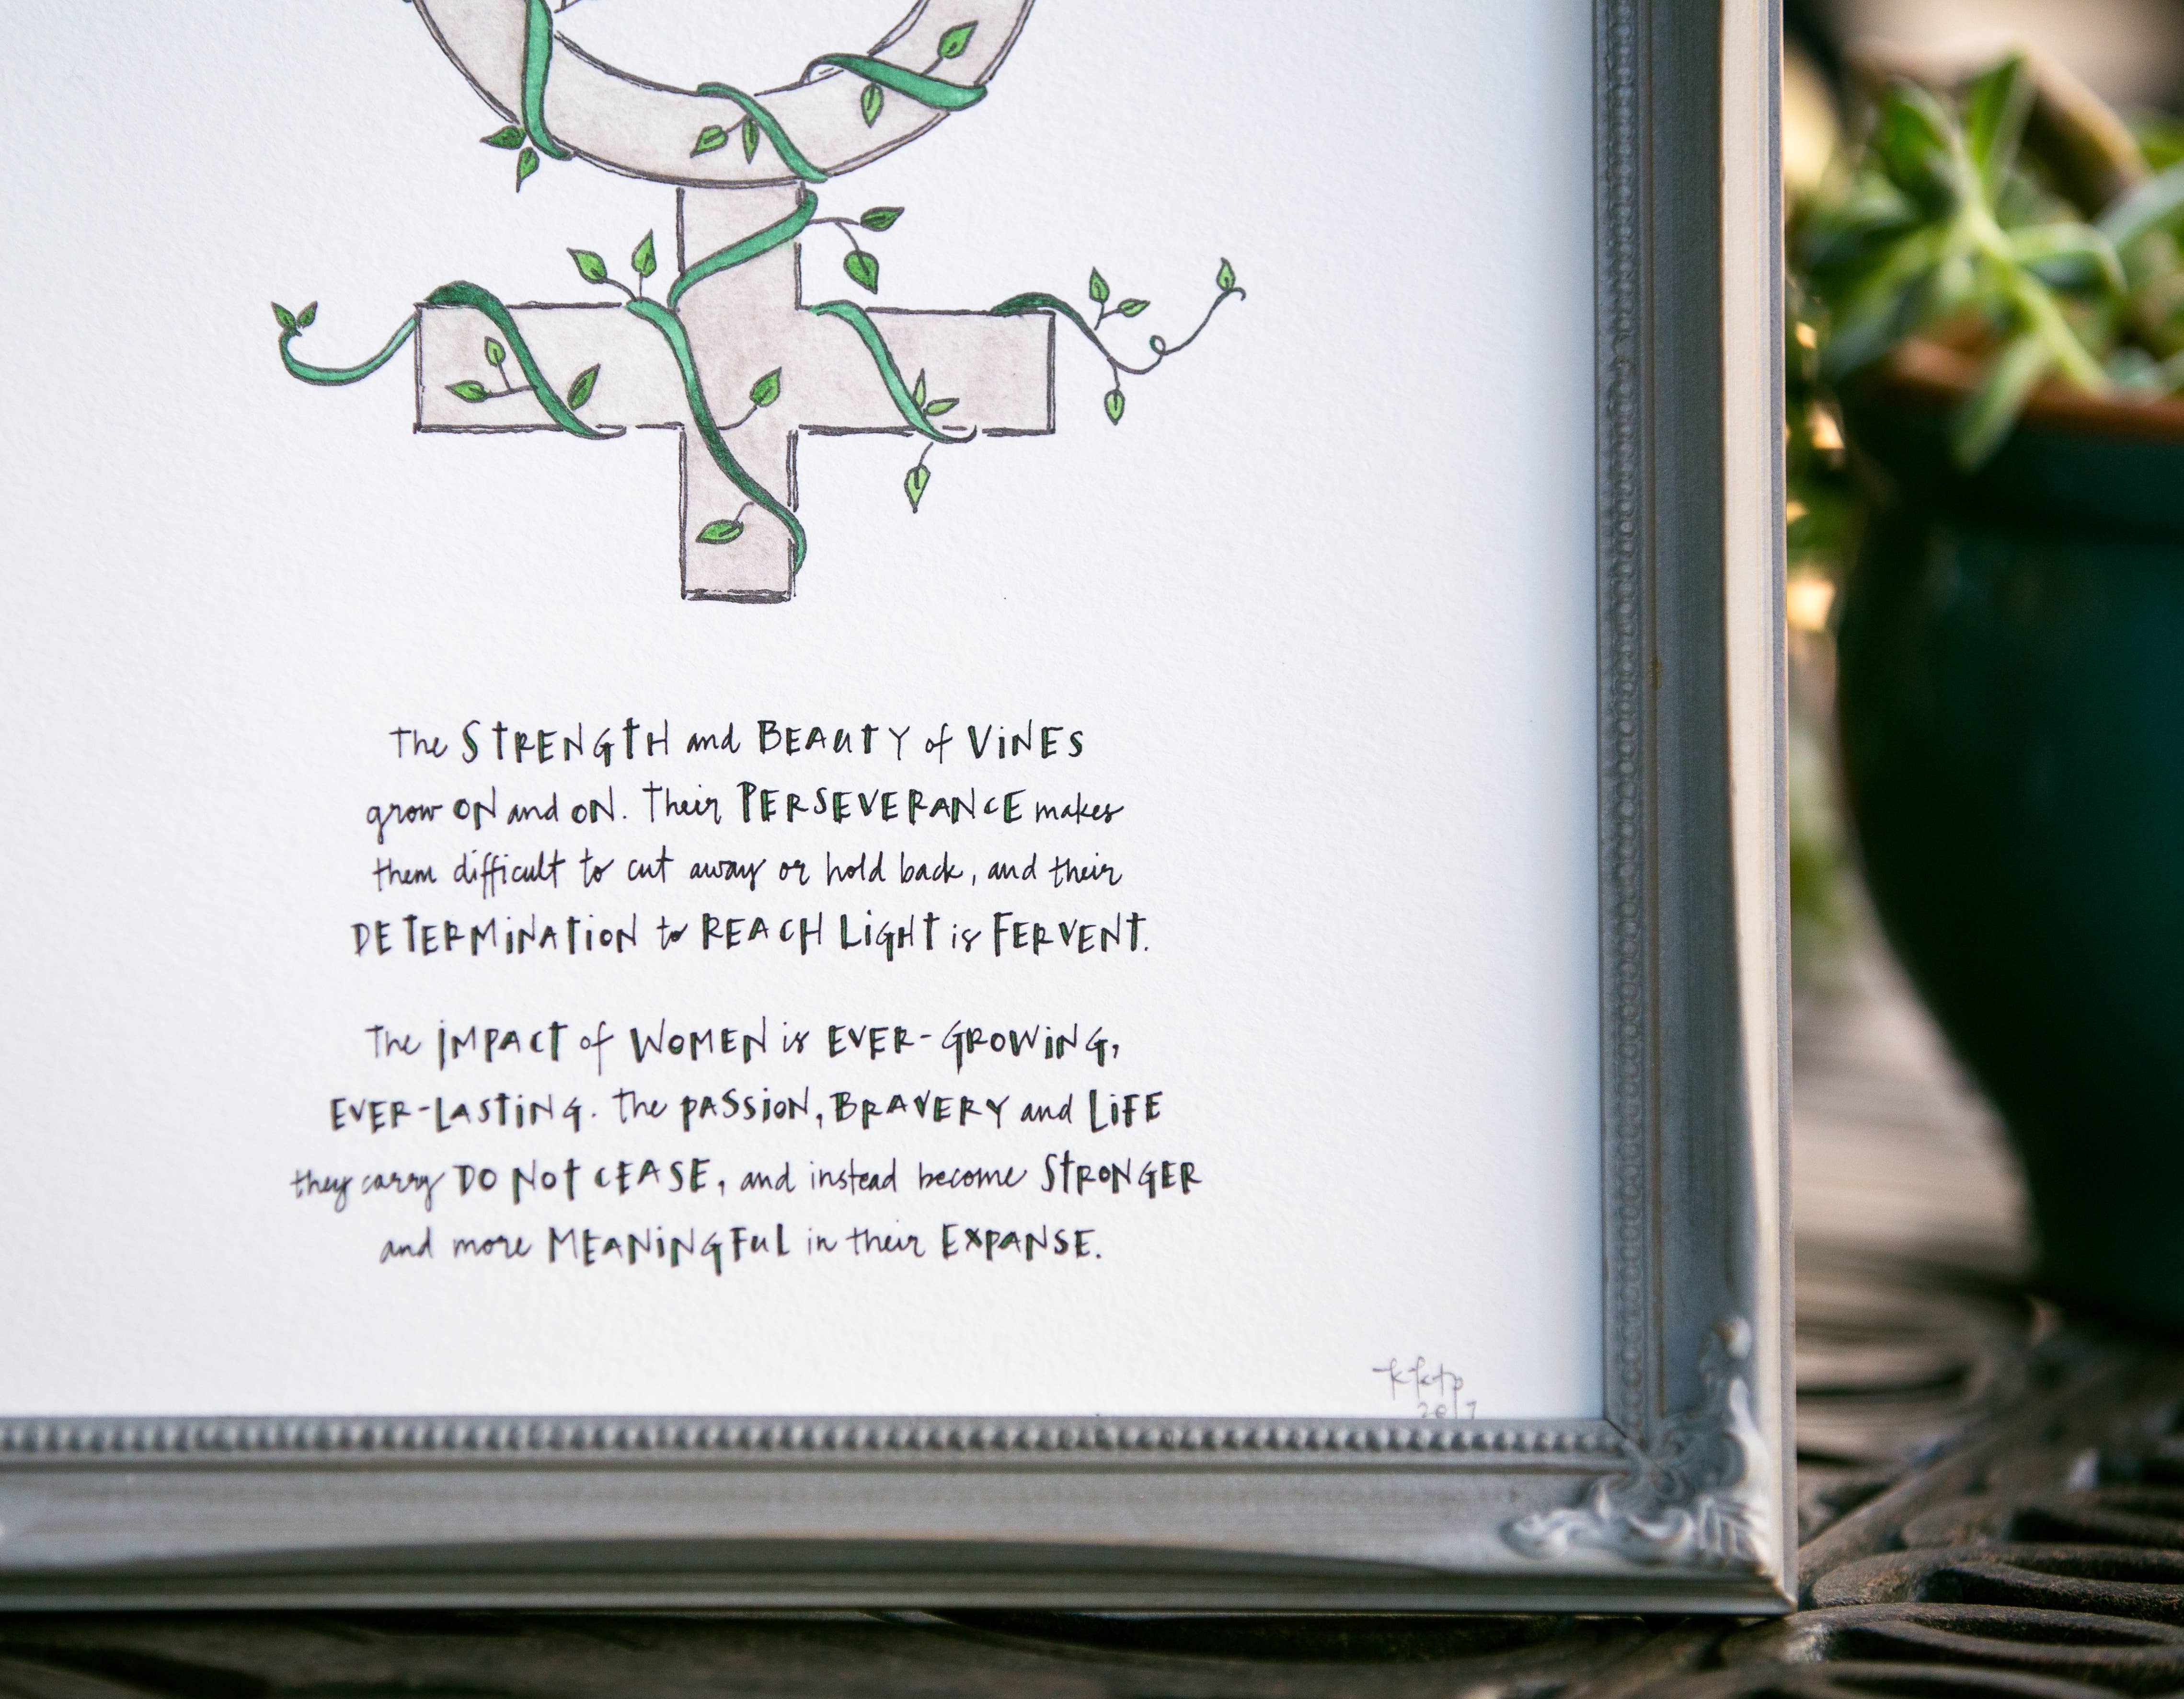 The STRENGTH and BEAUTY of ViNES
grow ON and ON. Their PERSEVERANCE makes
them difficult to cut away or hold back, and their
DETERMiNATiON to REACH LiGHT is FERVENT.
The iMPACT of WOMEN is EVER-GROWiNG,
EVER-LASTiNG. The PASSiON, BRAVERY and LiFE
they carry DO NOT CEASE, and instead become STRONGER
and more MEANiNGFUL in their EXPANSE.
2017